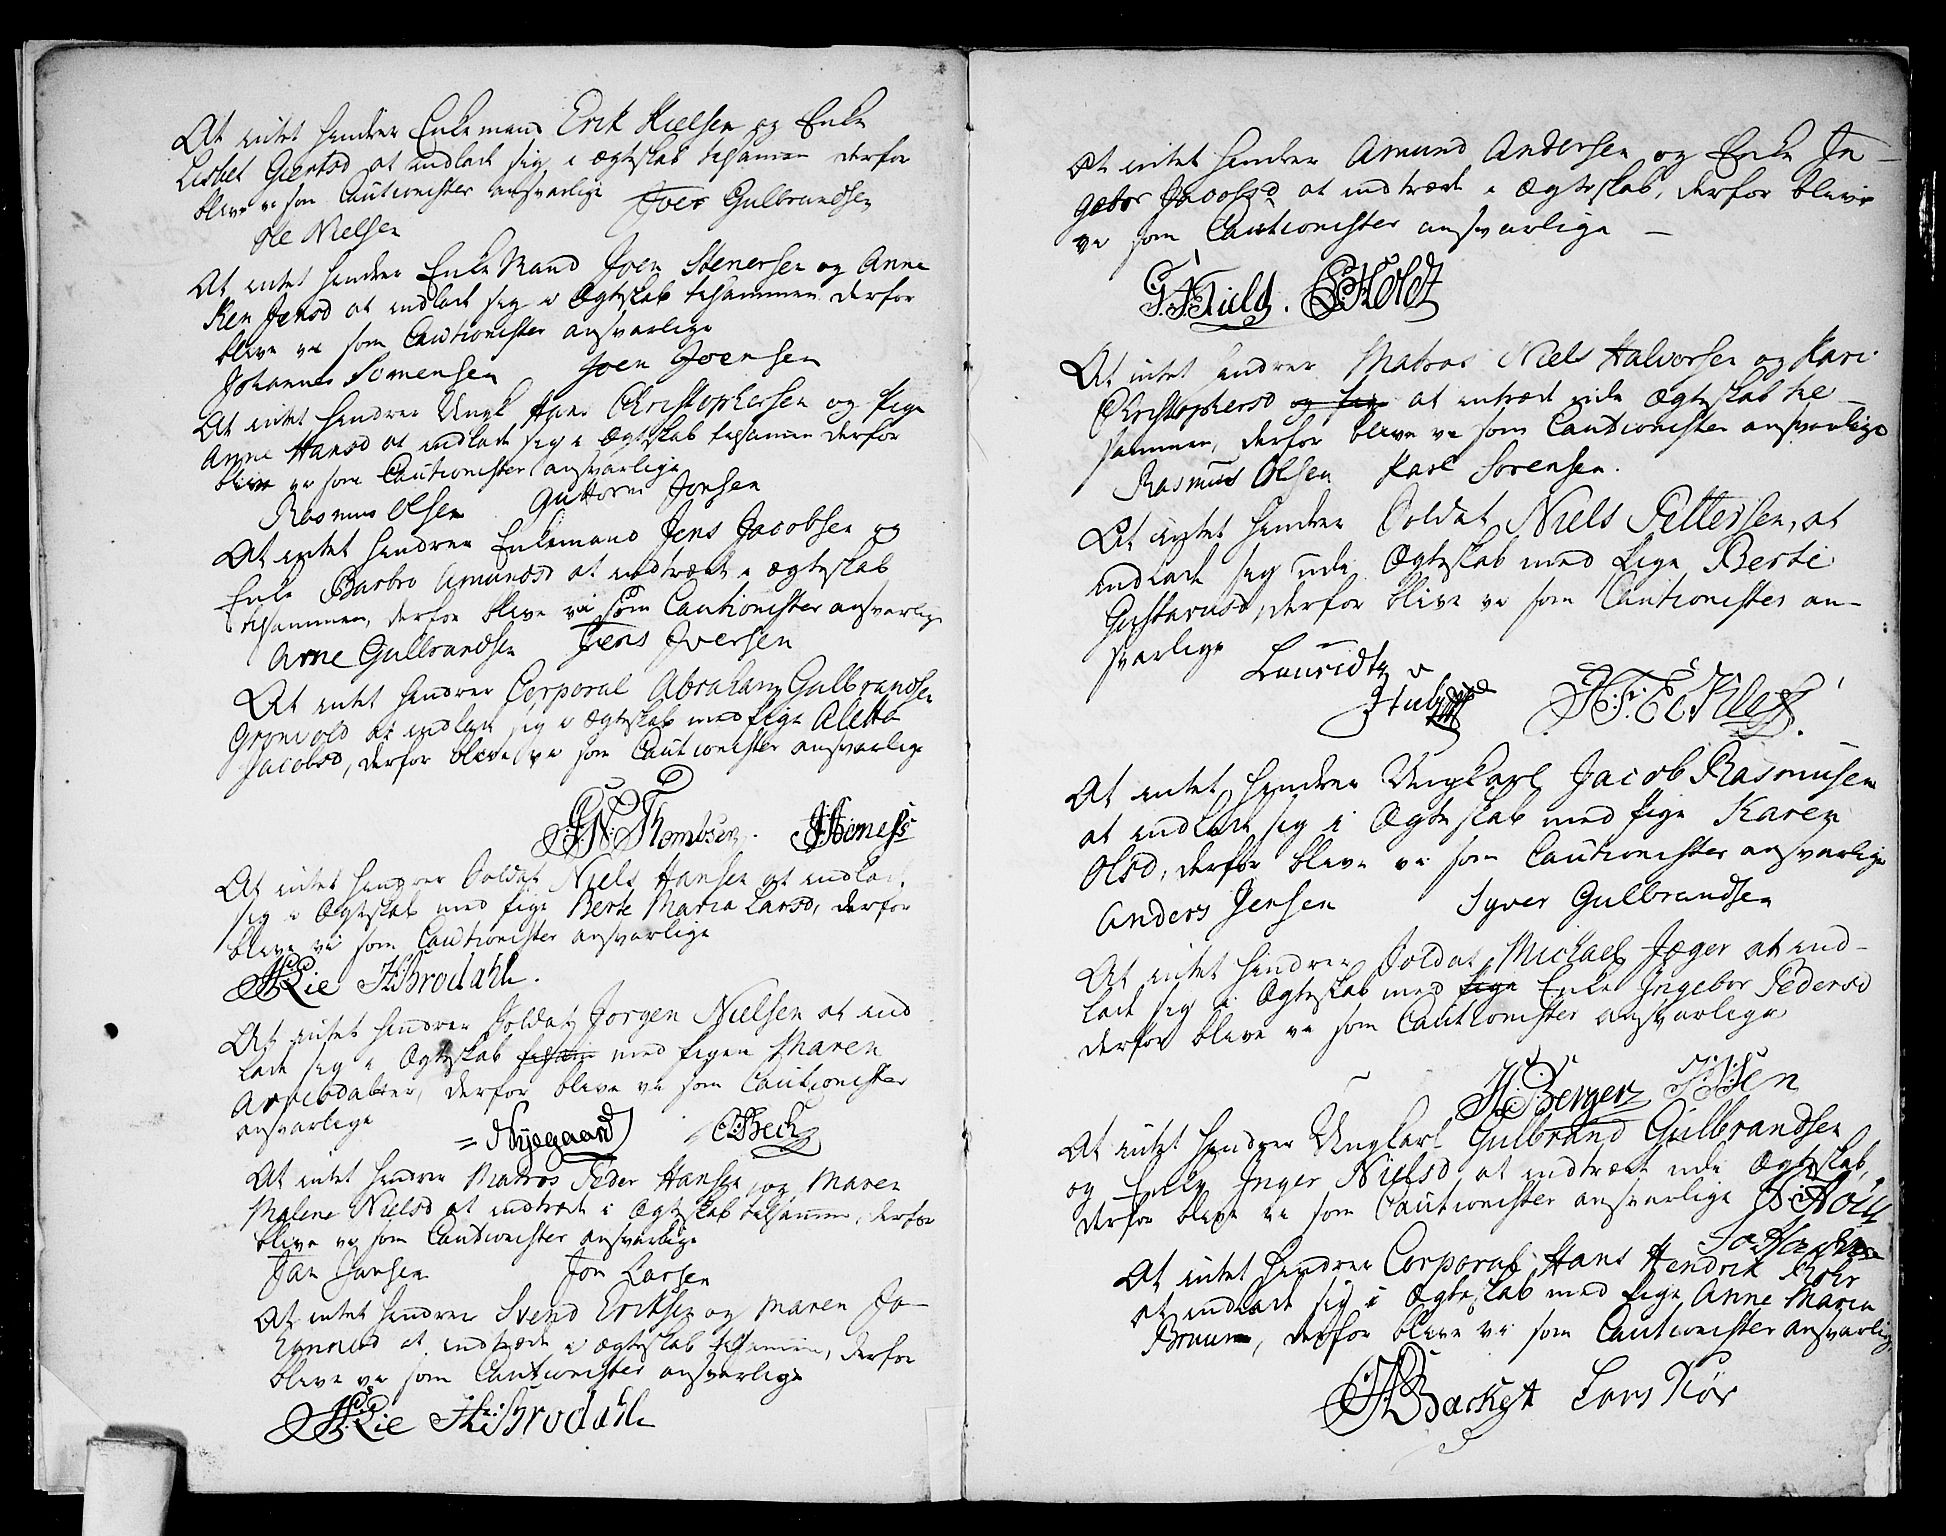 At intet hindrer Enkemand Erik Nielsen og Enke
Lisbet Giertsd at indlade sig i ægteskab tilsamen derfor
blive vi som Cautionister ansvarlige Iver Gulbrandsen
Ole Nielsen
At intet hindrer EnkeMand Joen Stenersen og Anne
Ken Jensd at indlade sig i Ægteskab tilsammen derfor
blive vi som Cautionister ansvarlige
Johannes Simensen Joen Joensen
At intet hindrer Ungk Hans Christophersen og Pige
Anne Hansd at indlade sig i Ægteskab tilsamen derfor
blive vi som Cautionister ansvarlige
Rasmus Olsen Guttorm Jonsen
At intet hindrer Enkemand Jens Jacobsen og
Enke Barbro Amundsd at indtræde i ægteskab
tilsammen, derfor blive vi som Cautionister ansvarlige
Arne Gulbrandsen Jens Iversen
At intet hindrer Corporal Abraham Gulbrandsen
Grønvold at indlade sig i Ægteskab med Pige Aletta
Jacobsd, derfor blive vi som Cautionister ansvarlige
Thombsen.
At intet hindrer Soldat Niels Hansen at indlade
sig i Ægteskab med Pige Berte Maria Larsd, derfor
blive vi som Cautionister ansvarlige
Lie H:Brodahl.
At intet hindrer Soldat Jørgen Nielsen at ind
lade sig i Ægteskab med Pigen Maren
derfor blive vi som Cautionister
ansvarlige
= Nyegaard CBech
At intet hindrer Matros Peder Hansen og Maren
Malene Nielsd at indtræde i Ægteskab tilsamen, derfor
blive vi som Cautionister ansvarlige
Jan Jansen Jon Larsen
At intet hindrer Svend Eriksen og Maren Jo-
hannesd at indtræde i ægteskab tilsamen, derfor
blive vi som Cautionister ansvarlige
Lie H:Brodahl
At intet hindrer Amund Andersen og Enke In-
gebor Jacobsd at indtræde i Ægteskab, derfor blive
vi som Cautionister ansvarlige -
Kield. Holdt
At intet hindrer Matros Niels Halvorsen og Kari
Christophersd og Pige at indtræde udi Ægteskab til-
sammen, derfor blive vi som Cautionister ansvarlige
Rasmus Olsen Karl Sørensen.
At intet hindrer Soldat Niels Pettersen, at
indlade sig udi Ægteskab med Pige Berte
Gustavusd, derfor blive vi som Cautionister an-
svarlige Lauridtz
At intet hindrer Ungkarl Jacob Rasmusen
at indlade sig i Ægteskab med Pige Karen
Olsd, derfor blive vi som Cautionister ansvarlige
Anders Jensen Syver Gulbrandsen
At intet hindrer Soldat Michael Jæger at ind-
lade sig i Ægteskab med Pige Enke Ingebor Pedersd
derfor blive vi som Cautionister ansvarlige
H. Berger
At intet hindrer Ungkarl Gulbrand Gulbrandsen
og Enke Inger Nielsd at indtræde udi Ægteskab,
derfor blive vi som Cautionister ansvarlige
At intet hindrer Corporal Hans Hendrik
at indlade sig i Ægteskab med Pige Anne Maria
Bruun, derfor blive vi som Cautionister ansvarlig
Lars Kiør